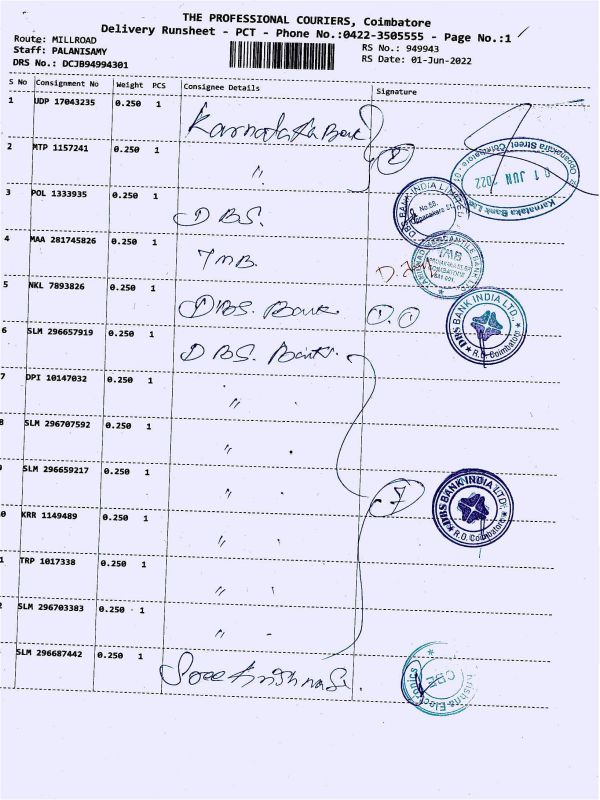 THE PROFESSIONAL COURIERS, Coimbatore
Delivery Runsheet - PCT - Phone No.:0422-3505555 - Page No.:1
Route: MILLROAD
RS No.: 949943
Staff: PALANISAMY
RS Date: 01-Jun-2022
DRS No.: DCJB94994301
S No Consignment No Weight PCS Consignee Details Signature
1 UDP 17043235 0.250 1 Karnataka Bank
2 MTP 1157241 0.250 1 〃
Karnataka Bank Ltd
01 JUN 2022
3 POL 1333935 0.250 1 DBS.
DBS BANK INDIA LIMITED
4 MAA 281745826 0.250 1 TMB.
TMB
5 NKL 7893826 0.250 1 DBS. Bank
DBS BANK INDIA LTD.,
R.O. Coimbatore
6 SLM 296657919 0.250 1 DBS. Bank
7 DPI 10147032 0.250 1 〃
8 SLM 296707592 0.250 1 〃
9 SLM 296659217 0.250 1 〃
DBS BANK INDIA LTD.
R.O. Coimbatore
0 KRR 1149489 0.250 1 〃
1 TRP 1017338 0.250 1 〃
2 SLM 296703383 0.250 1 〃
SLM 296687442 0.250 1 Sree Krishna
CBE
Electronics